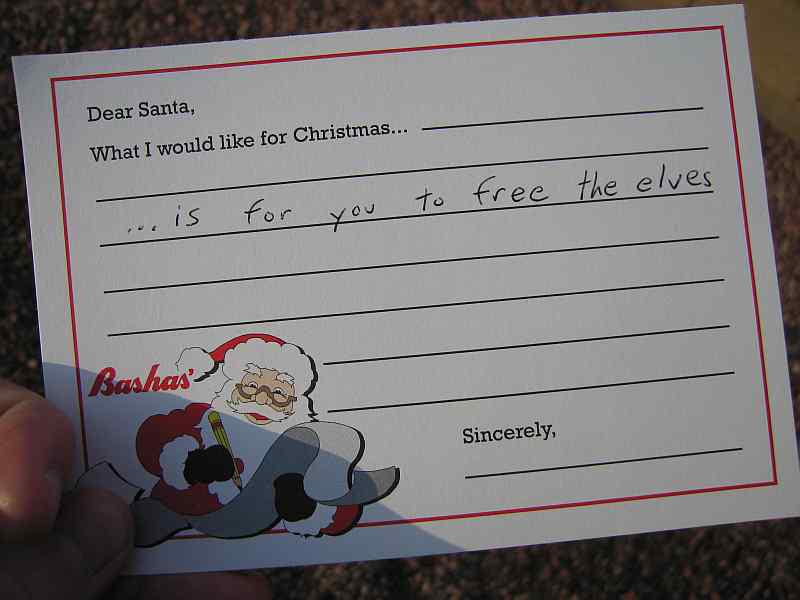 Dear Santa,
What I would like for Christmas...
... is for you to free the elves
Bashas'
Sincerely,